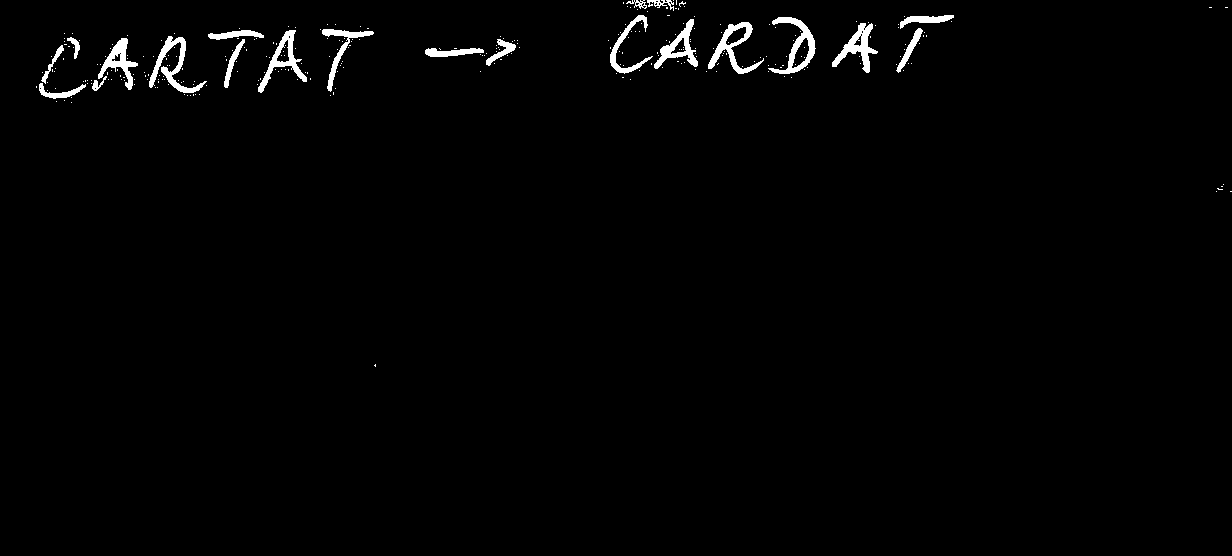 CARTAT -> CARDAT